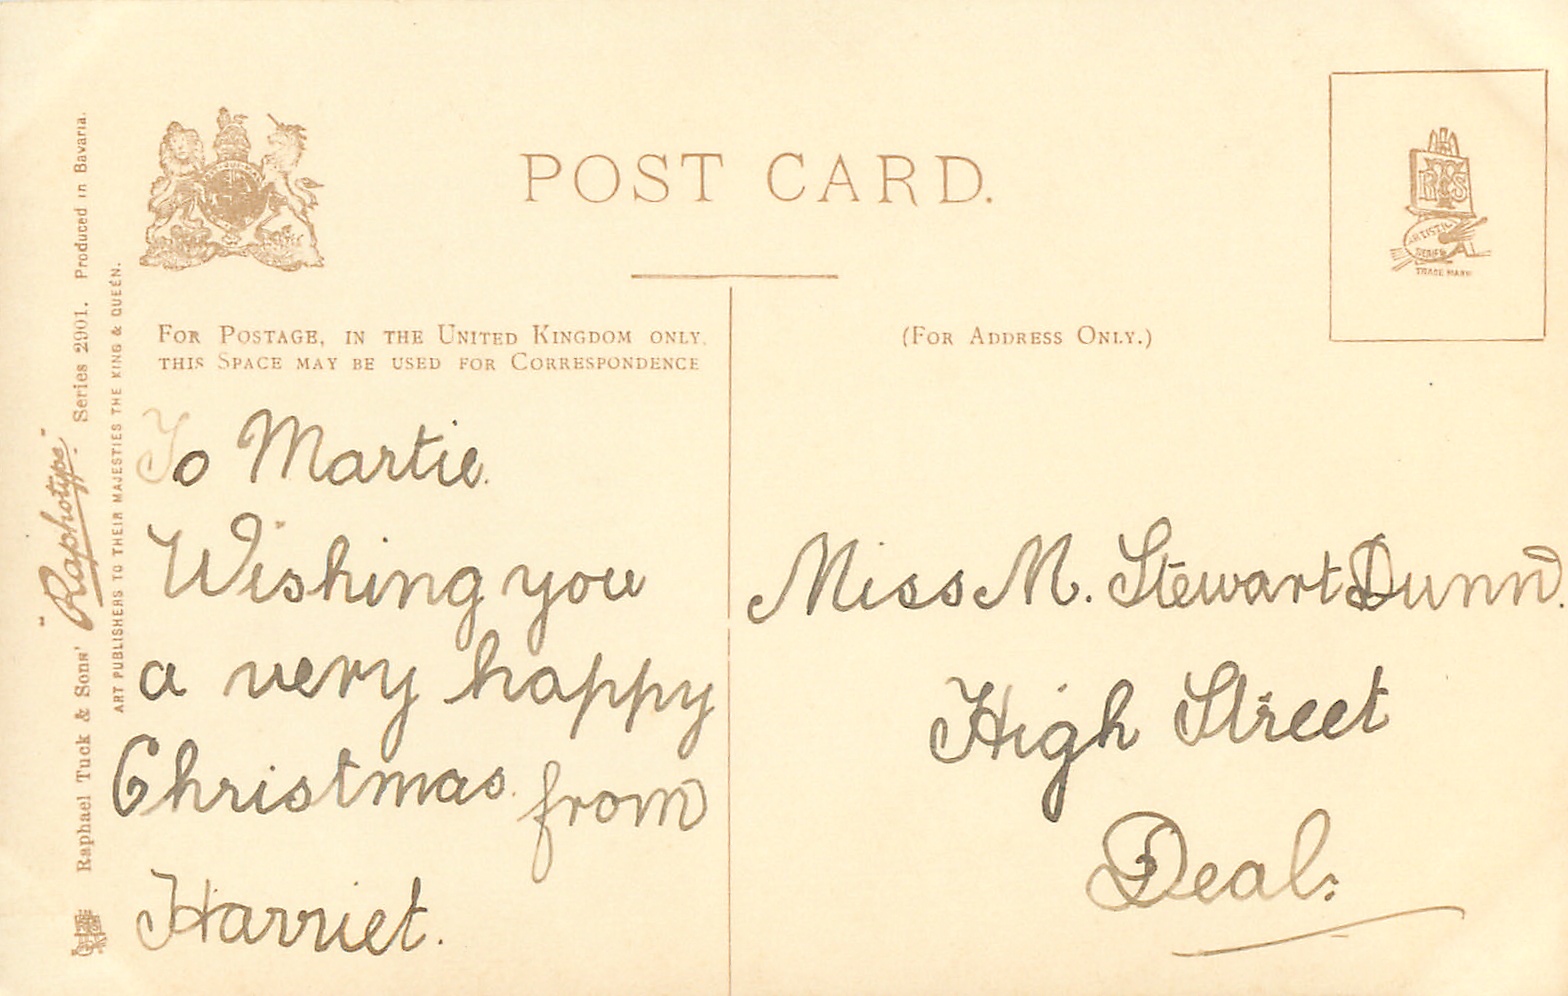 POST CARD.
FOR POSTAGE, IN THE UNITED KINGDOM ONLY,
THIS SPACE MAY BE USED FOR CORRESPONDENCE
(FOR ADDRESS ONLY.)
RTS
ARTISTIC
SERIES
TRADE MARK
To Martie.
Wishing you
a very happy
Christmas. from
Harriet.
Miss M. Stewart Dunn.
High Street
Deal.
Raphael Tuck & Sons' "Raphotype" Series 2901. Produced in Bavaria.
ART PUBLISHERS TO THEIR MAJESTIES THE KING & QUEEN.